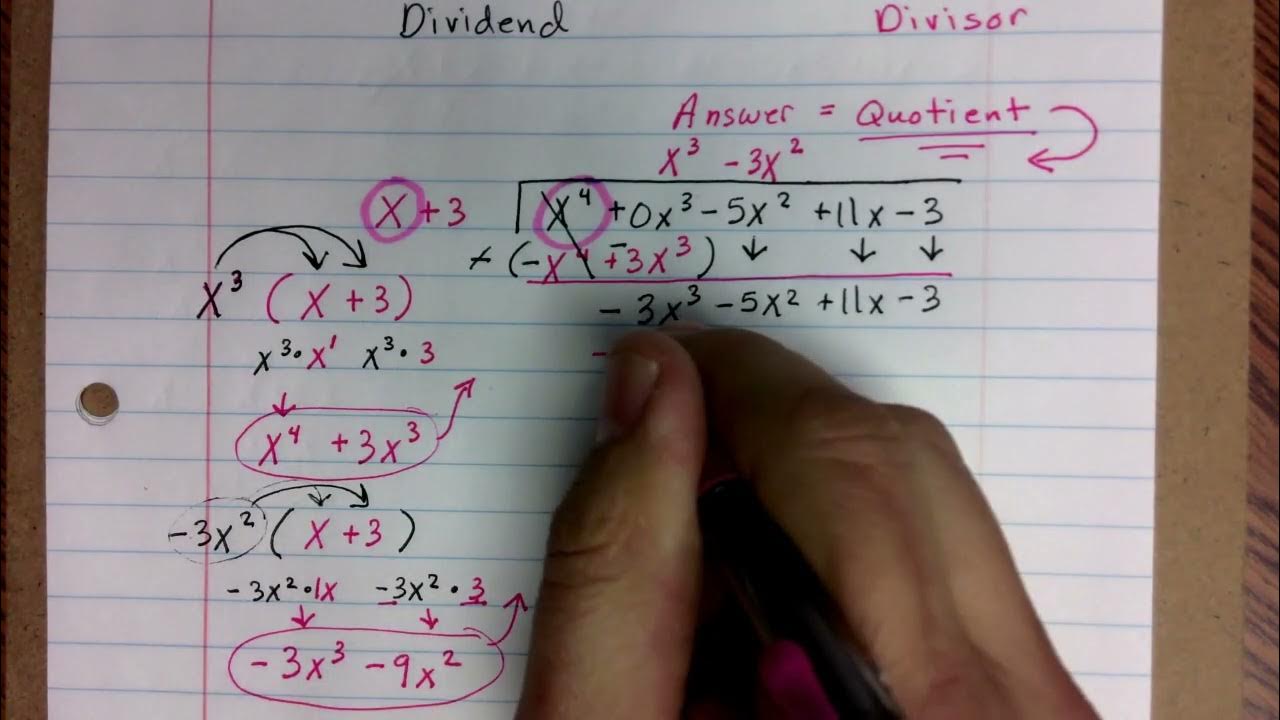 Dividend Divisor
Answer = Quotient
x³ - 3x²
x + 3 x⁴ + 0x³ - 5x² + 11x - 3
(-x⁴ + 3x³)
- 3x³ - 5x² + 11x - 3
x³ (x + 3)
x³ · x¹ x³ · 3
x⁴ + 3x³
-3x² (x + 3)
-3x² · 1x -3x² · 3
-3x³ - 9x²